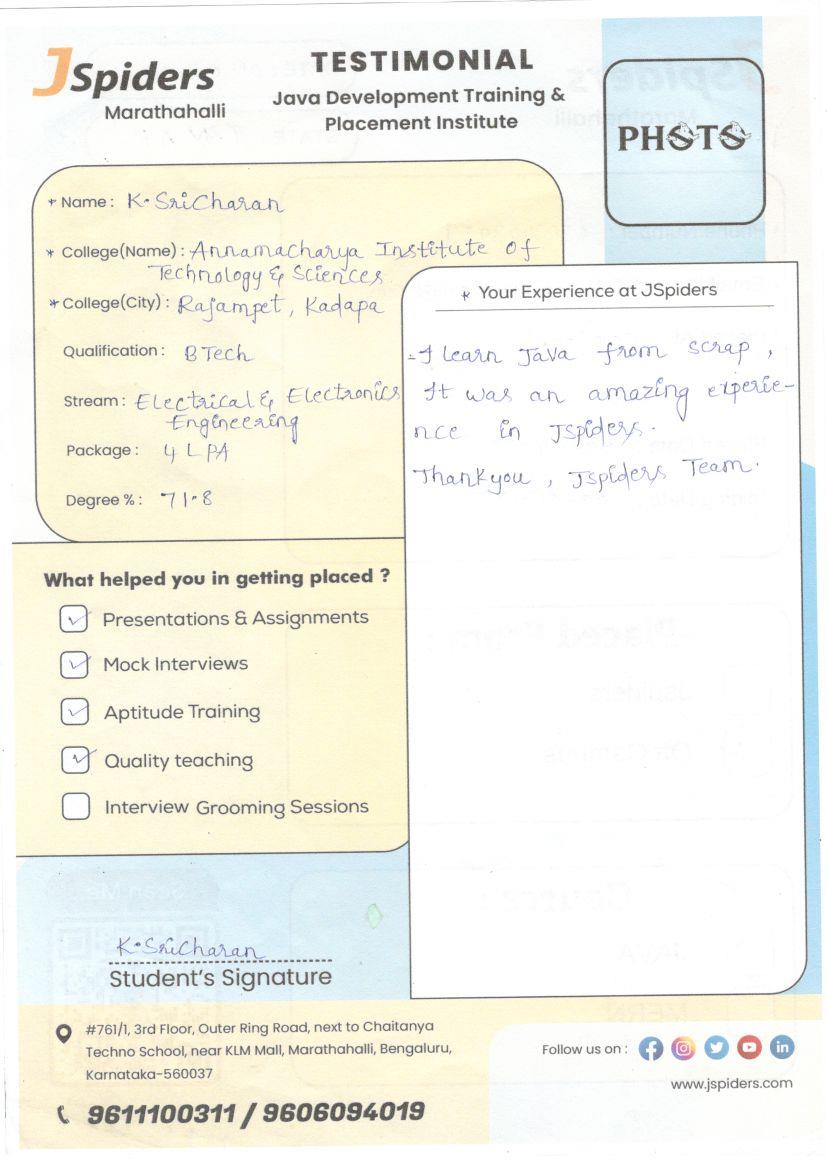 JSpiders
Marathahalli
TESTIMONIAL
Java Development Training &
Placement Institute
PHOTO
* Name : K. SriCharan
* College(Name) : Annamacharya Institute Of
Technology & Sciences
* College(City) : Rajampet, Kadapa
Qualification : B Tech
Stream : Electrical & Electronics
Engineering
Package : 4 LPA
Degree % : 71.8
* Your Experience at JSpiders
- I learn Java from scrap ,
It was an amazing experie-
nce in Jspiders.
Thankyou , Jspiders Team.
What helped you in getting placed ?
Presentations & Assignments
Mock Interviews
Aptitude Training
Quality teaching
Interview Grooming Sessions
K. SriCharan
Student's Signature
#761/1, 3rd Floor, Outer Ring Road, next to Chaitanya
Techno School, near KLM Mall, Marathahalli, Bengaluru,
Karnataka-560037
9611100311 / 9606094019
Follow us on :
www.jspiders.com